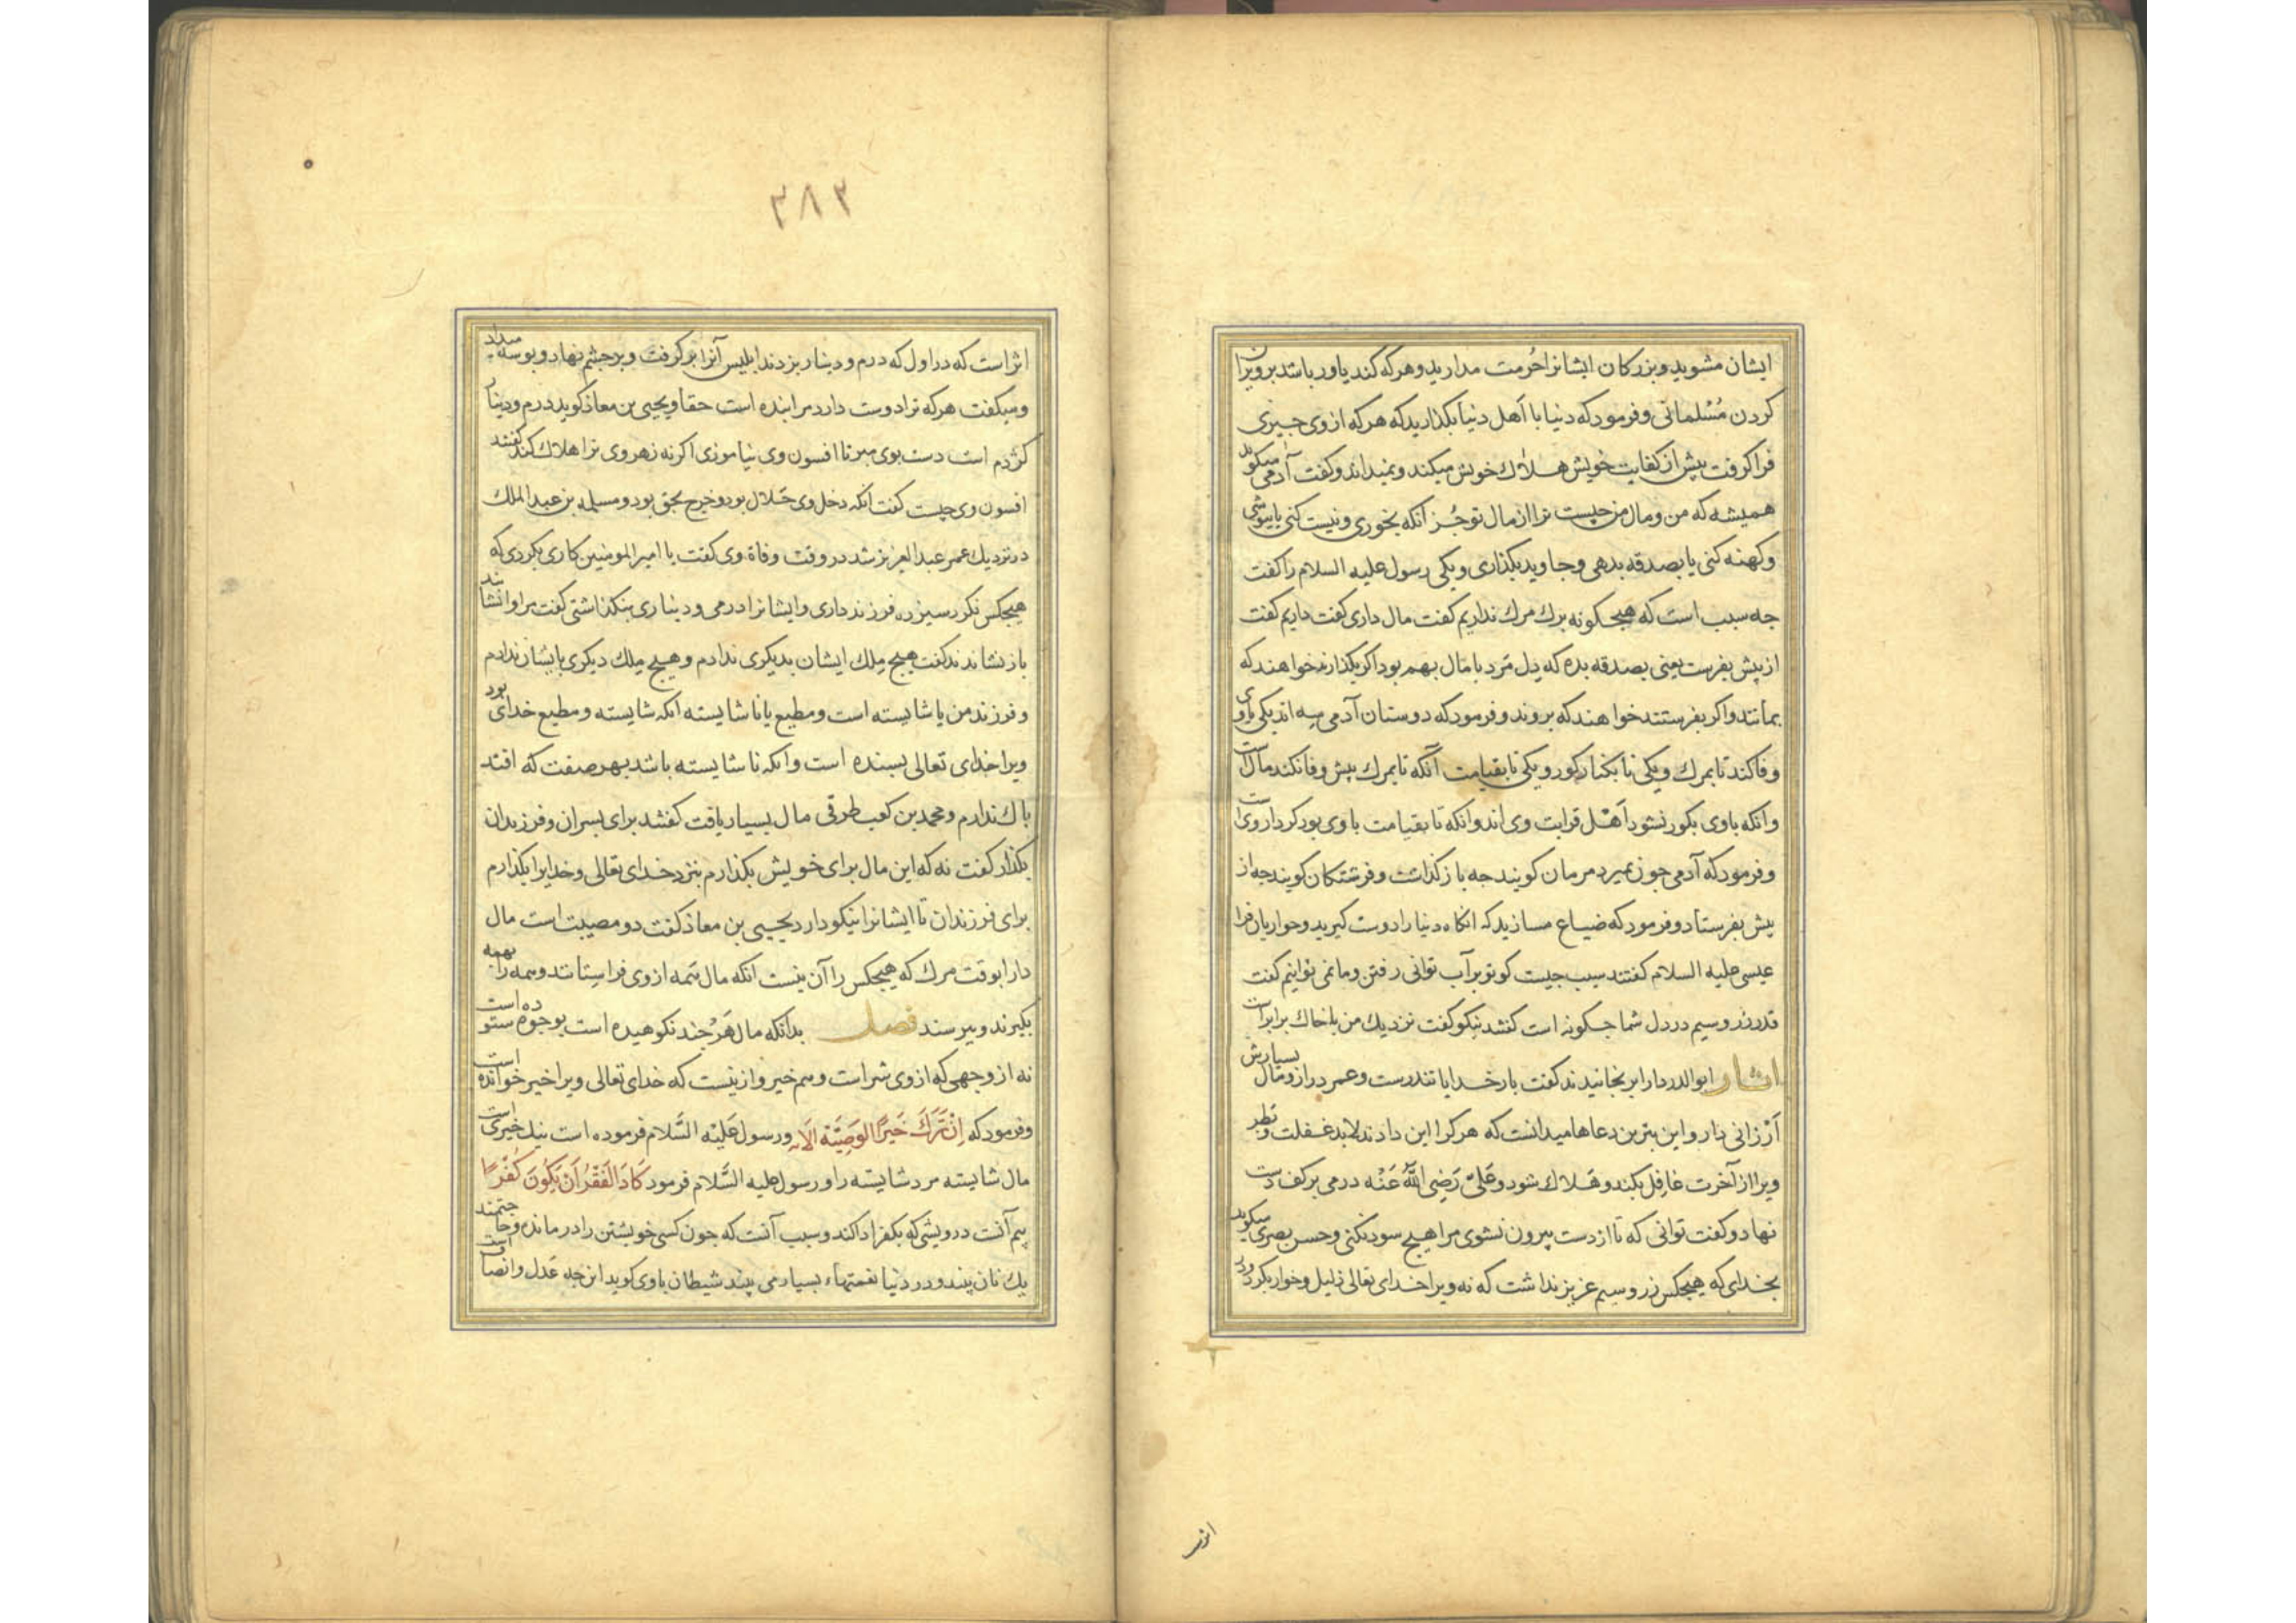 ایشان مشوید و بزرکان ایشانرا حُرمت مدارید و هر که کند یاور باشد بر ویران
کردن مُسْلمانی و فرمود که دنیا با اَهل دنیا بکذارید که هر که از وی جیزی
فرا کرفت بیش از کفایت خویش هلاك خویش میکند و نمیداند و کفت آدمی میکوید
همیشه که من و مال من چیست ترا از مال تو جُز آنکه بخوری و نیست کنی یا بپوشی
و کهنه کنی یا بصدقه بدهی و جاوید بکذاری و یکی رسول علیه السلام را کفت
جه سبب است که هیجکونه برك مرك نداریم کفت مال داری کفت داریم کفت
از پیش بفرست یعنی بصدقه بده که دِل مَرد با مَال بهم بود اکر بکذارند خواهند که
بمانند و اکر بفرستند خواهند که بروند و فرمود که دوستان آدمی سه اند یکی با وی
وفا کند تا بمرك و یکی تا بکنار کور و یکی تا بقیامت آنکه تا بمرك بیش وفا نکند مال است
و انکه با وی بکور نشود اَهْل قرابت وی اند و انکه تا بقیامت با وی بود کردار وی است
و فرمود که آدمی جون بمیرد مرمان کویند جه باز کذاشت و فرشتکان کویند جه از
بیش بفرستاد و فرمود که ضیاع مسازید که انکاه دنیا را دوست کیرید و حواریان فرا
عیسی علیه السلام کفتند سبب جیست کو تو بر آب توانی رفتن و ما نمی توانیم کفت
قدر زر و سیم در دل شما جکونه است کفتند نیکو کفت نزدیك من با خاك برابر است
اثار ابو الدردا را برنجانیدند کفت بار خدایا تندرست و عمر دراز و مال بسیارش
اَرْزانی دار و این بترین دعاها میدانست که هر کرا این دادند لابد غفلت و بطر
ویرا از آخرت غافِل بکند و هَلاك شود و عَلیّ رَضِی اللّٰهُ عَنْه درمی بر کف دست
نهاد و کفت توانی که تا از دست بیرون نشوی مرا هیج سود نکنی و حسن بصری میکوید
بخدای که هیجکس زر و سیم عزیز نداشت که نه ویرا خدای تعالی ذلیل و خوار بکرد و در
اثر
٣٨٣
اثر است که در اول که درم و دینار بزدند ابلیس آنرا بر کرفت و بر جشم نهاد و بوسه میداد
و میکفت هر که ترا دوست دارد مرا بنده است حقا و یحیی بن معاذ کوید درم و دینار
کژدم است دست بوی مبر تا افسون وی نیاموزی اکر نه زهر وی ترا هلاك کند کفتند
افسون وی چیست کفت انکه دخل وی حَلال بود و خرج بحق بود و مسلمه بن عبد الملك
در نزدیك عمر عبد العزیز شد در وقت وفاة وی کفت یا امیر المومنین کاری بکردی که
هیجکس نکرد سیزده فرزند داری و ایشانرا درمی و دیناری بنکذاشتی کفت مرا وانشانند
باز نشاندند کفت هیج مِلك ایشان بدیکری ندادم و هیج مِلك دیکری بایشان ندادم
و فرزند من یا شایسته است و مطیع یا نا شایسته انکه شایسته و مطیع خدای بود
ویرا خدای تعالی بسنده است و انکه نا شایسته باشد بهر صفت که افتد
باك ندارم و محمد بن کعب طرقی مال بسیار یافت کفتند برای بسران و فرزندان
بکذار کفت نه که این مال برای خویش بکذارم بنزد خدای تعالی و خدایرا بکذارم
برای فرزندان تا ایشانرا نیکو دارد یحیی بن معاذ کفت دو مصیبت است مال
دار را بوقت مرك که هیجکس را آن نیست انکه مال همه از وی فراستانند و همه را بهمه
بکیرند و ببرسند فصل بدانکه مال هَرْ جند نکوهیده است بوجوه ستوده است
نه از وجهی که از وی شر است و هم خیر و از ینست که خدای تعالی ویرا خیر خوانده است
و فرمود که اِنْ تَرَكَ خَیرًا الوَصِیَّة الاَیه و رسول عَلَیْه السَّلام فرموده است نیك خیری است
مال شایسته مرد شایسته را و رسول علیه السَّلام فرمود کَادَ الفَقْرُ اَنْ یَکُونَ کُفْرًا
بیم آنست درویشی که بکفر ادا کند و سبب آنست که جون کسی خویشتن را در مانده و حاجتمند
یك نان بیند و در دنیا نعمتهاء بسیار می بیند شیطان با وی کوید این جه عَدل و انصاف است